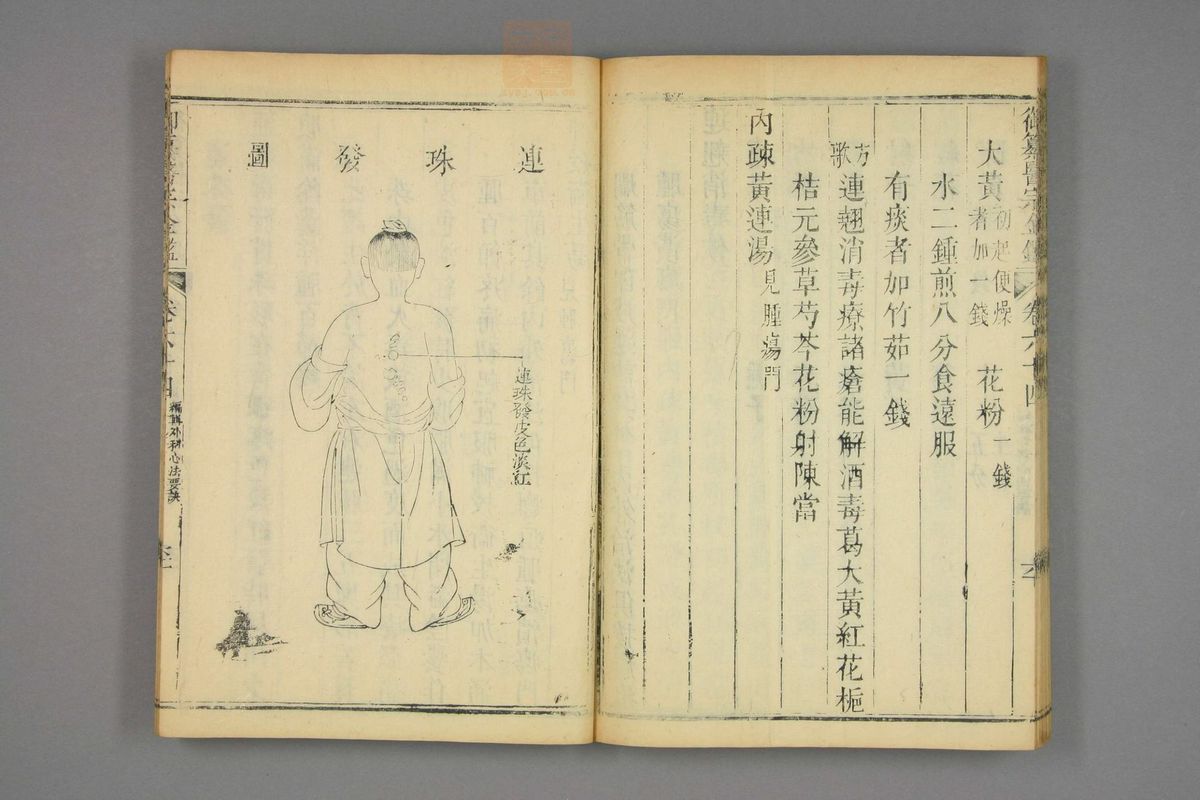 御纂醫宗金鑑 卷六十四
大黃 初起便燥者加一錢 花粉 一錢
水二鍾煎八分食遠服
有痰者加竹茹一錢
方歌 連翹消毒療諸瘡能解酒毒葛大黃紅花梔
桔元參草芍芩花粉射陳當
內疎黃連湯 見腫瘍門
連珠發圖
連珠發皮色淡紅
御纂醫宗金鑑 卷六十四 編輯外科心法要訣